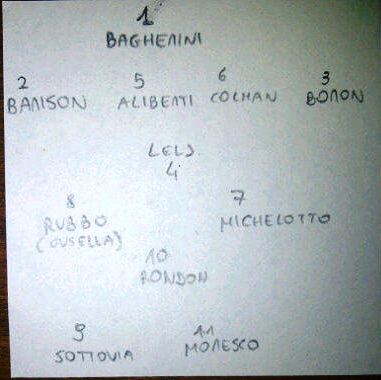 1
BAGHERINI
2 5 6 3
BARISON ALIBERTI COLMAN BORON
LELJ
4
8 7
RUBBO MICHELOTTO
(CUSELLA)
10
RONDON
9 11
SOTTOVIA MORESCO